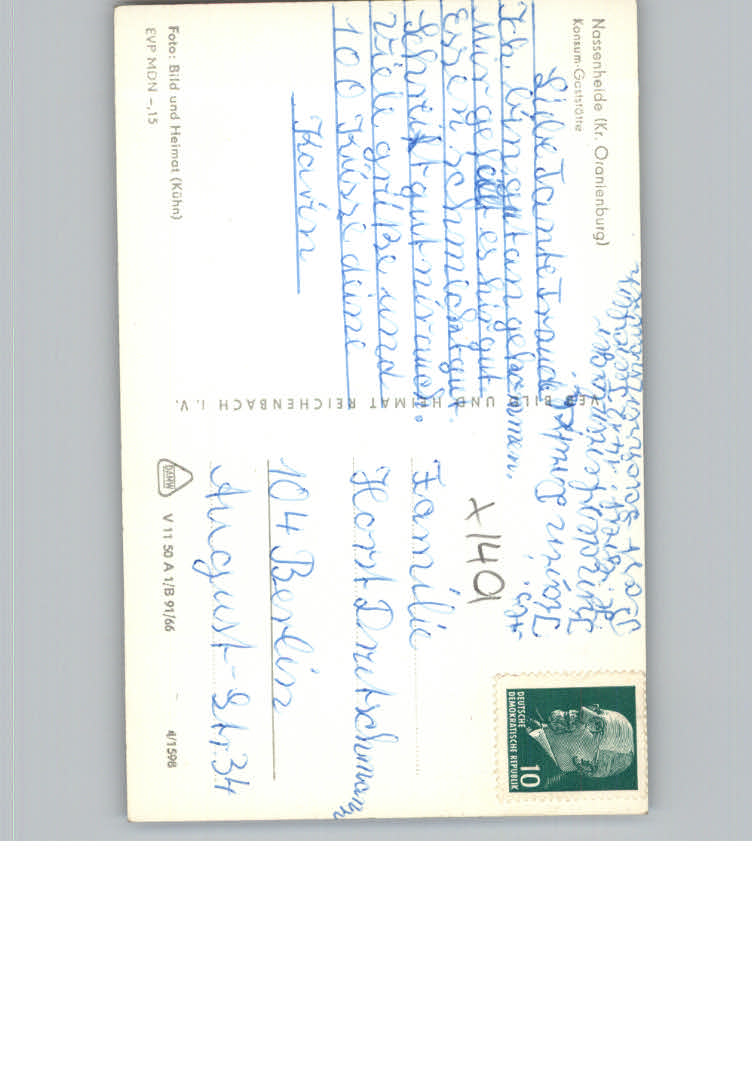 Nassenheide (Kr. Oranienburg)
Konsum-Gaststätte
Liebe Tante Traude
Ich bin gut angekommen.
Mir gefällt es hir gut
Essen schmickt gut.
Schreibt gut mir auch.
Viele grüße und
100 Küsse deine
Karin
Foto: Bild und Heimat (Kühn)
EVP MDN -,15
VEB BILD UND HEIMAT REICHENBACH i. V.
DEUTSCHE
DEMOKRATISCHE REPUBLIK
10
x140
Familie
Horst Drutschmann
104 Berlin
August-Str. 34
DAMW
V 11 50 A 1/B 91/66
4/1598